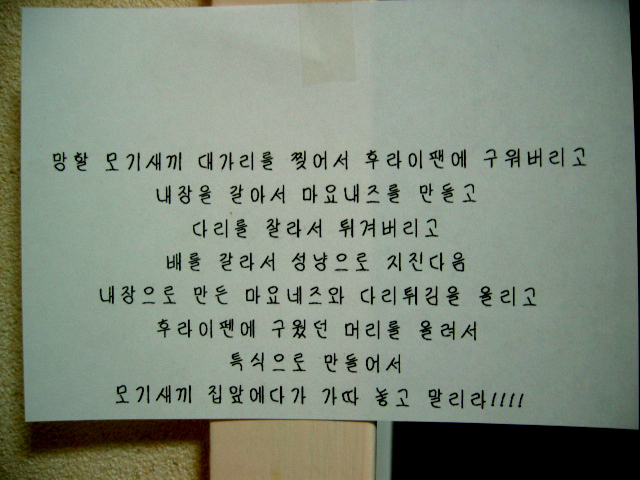 망할 모기새끼 대가리를 찢어서 후라이팬에 구워버리고
내장을 갈아서 마요내즈를 만들고
다리를 잘라서 튀겨버리고
배를 갈라서 성냥으로 지진다음
내장으로 만든 마요네즈와 다리튀김을 올리고
후라이펜에 구웠던 머리를 올려서
특식으로 만들어서
모기새끼 집앞에다가 가따 놓고 말리라!!!!